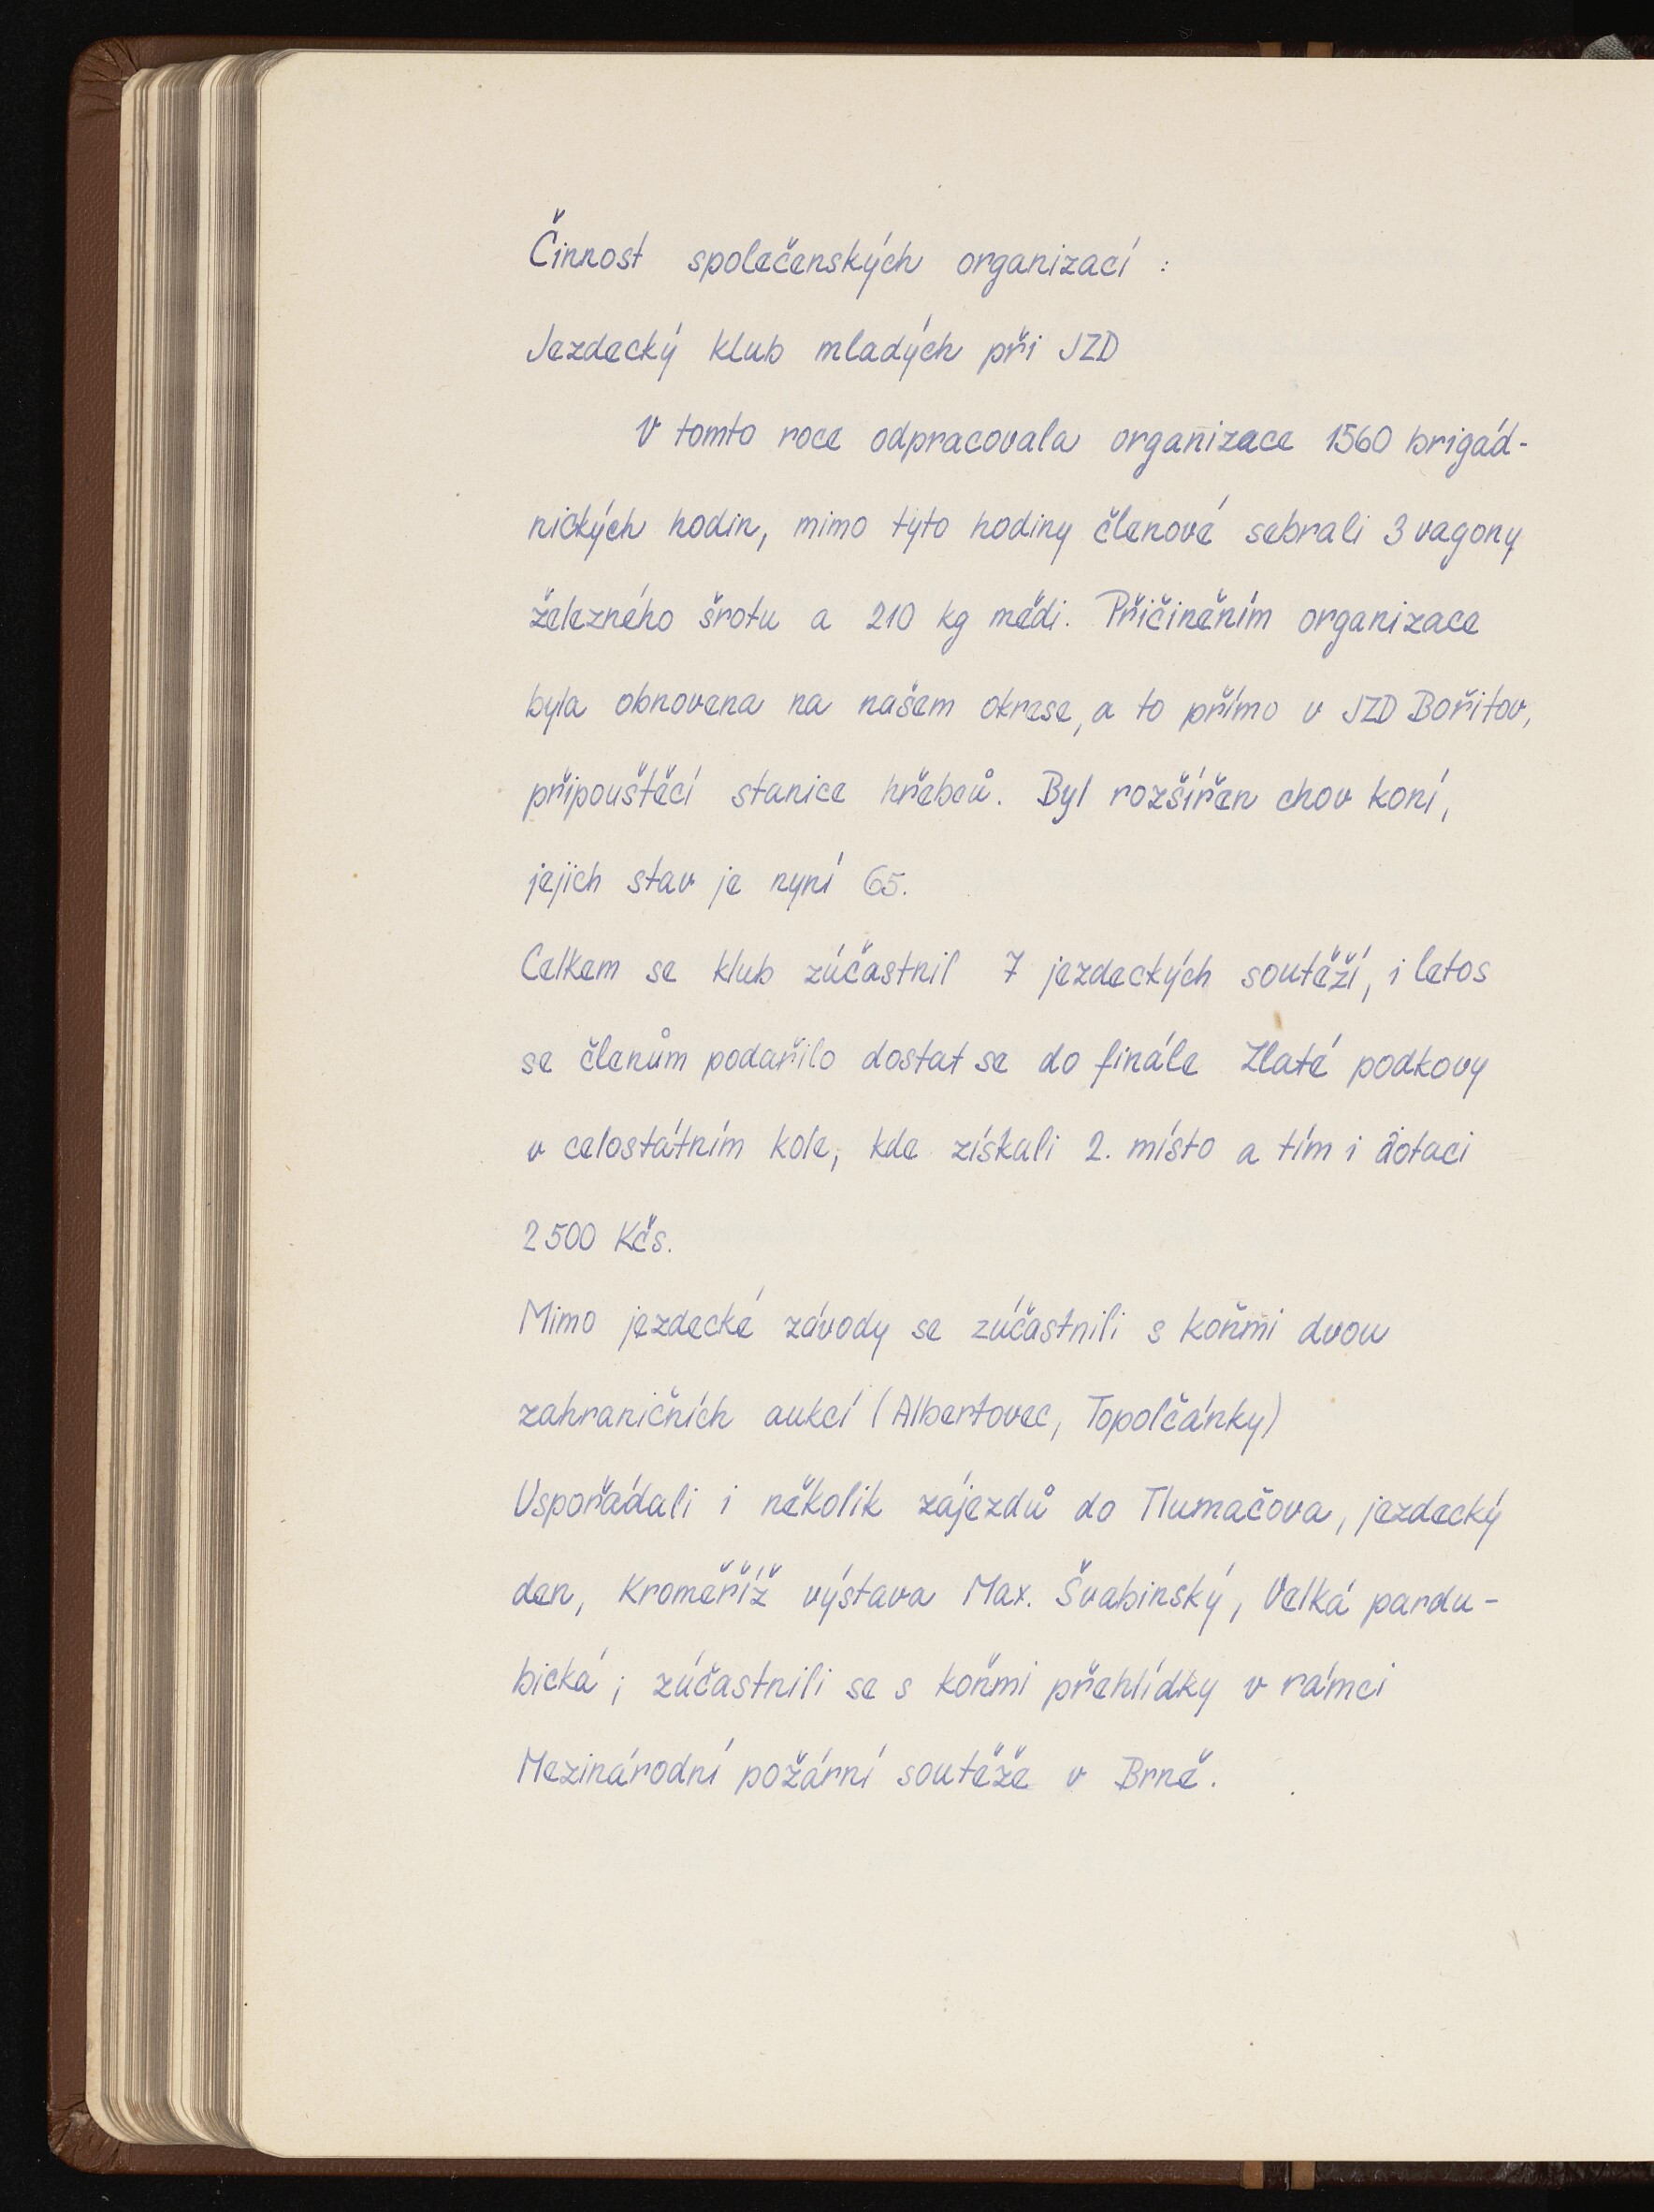 Činnost společenských organizací :
Jezdecký klub mladých při JZD
V tomto roce odpracovala organizace 1560 brigád-
nických hodin, mimo tyto hodiny členové sebrali 3 vagony
železného šrotu a 210 kg mědi. Přičiněním organizace
byla obnovena na našem okrese, a to přímo v JZD Bořitov,
připouštěcí stanice hřebců. Byl rozšířen chov koní,
jejich stav je nyní 65.
Celkem se klub zúčastnil 7 jezdeckých soutěží, i letos
se členům podařilo dostat se do finále Zlaté podkovy
v celostátním kole, kde získali 2. místo a tím i dotaci
2 500 Kčs.
Mimo jezdecké závody se zúčastnili s koňmi dvou
zahraničních aukcí (Albertovec, Topolčánky)
Uspořádali i několik zájezdů do Tlumačova, jezdecký
den, Kroměříž výstava Max. Švabinský, Velká pardu-
bická; zúčastnili se s koňmi přehlídky v rámci
Mezinárodní požární soutěže v Brně.